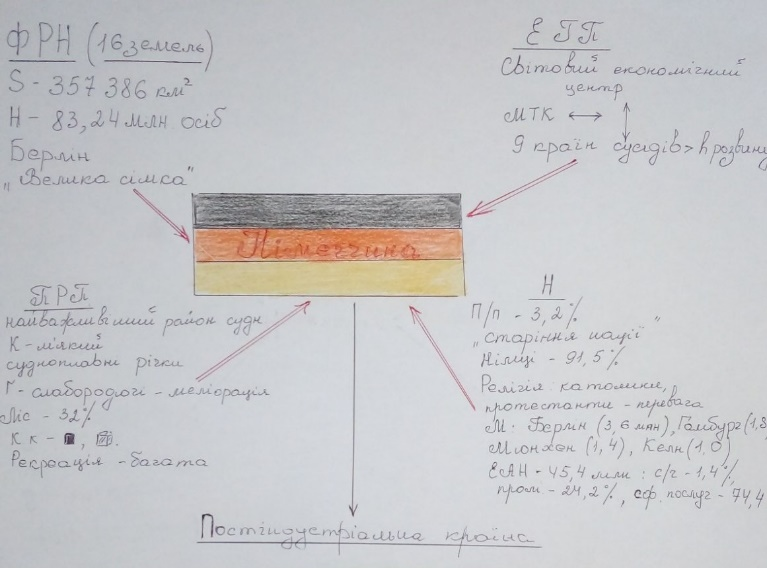 ФРН (16 земель)
S - 357 386 км²
Н - 83,24 млн осіб
Берлін
„Велика сімка"
ЕГП
Світовий економічний
центр
МТК ↔ ↕
9 країн сусідів > h розвину
Німеччина
ПРП
найважливіший район судн
К - м'який
судноплавні річки
Ґ - слабородючі - меліорація
Ліс - 32%
К к -
Рекреація - багата
Н
П/п - 3,2%
„старіння нації"
Німці - 91,5%
Релігія католики,
протестанти - перевага
М: Берлін (3,6 млн), Гамбург (1,8
Мюнхен (1,4), Келн (1,0)
ЕАН - 45,4 млн: с/г - 1,4%,
пром - 24,2%, сф. послуг - 74,4
Постіндустріальна країна